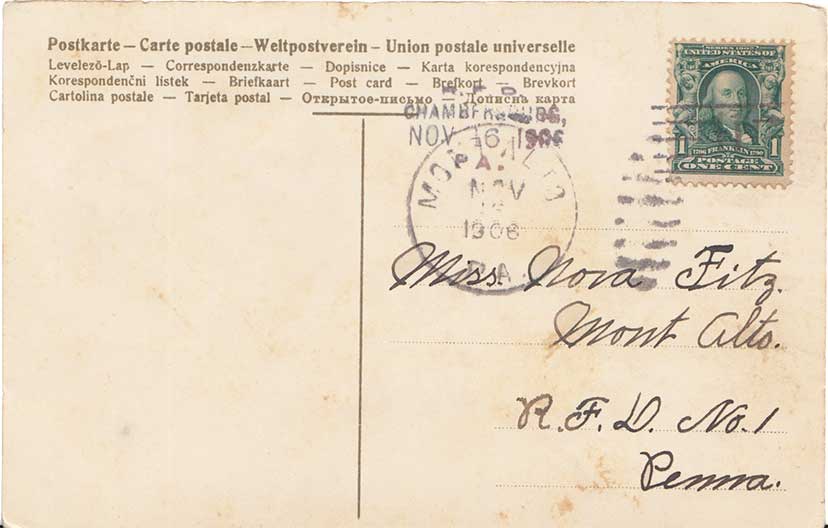 Postkarte – Carte postale – Weltpostverein – Union postale universelle
Levelező-Lap — Correspondenzkarte — Dopisnice — Karta korespondencyjna
Korespondenční lístek — Briefkaart — Post card — Brefkort — Brevkort
Cartolina postale — Tarjeta postal — Открытое-письмо — Дописна карта
SERIES 1902
UNITED STATES OF
AMERICA
1706 FRANKLIN 1790
1 POSTAGE 1
ONE CENT
R. F. D.
CHAMBERSBURG,
NOV 16 1906
PA.
MONT ALTO
NOV
1906
PA.
Miss. Nora Fitz.
Mont Alto.
R. F. D. No. 1
Penna.